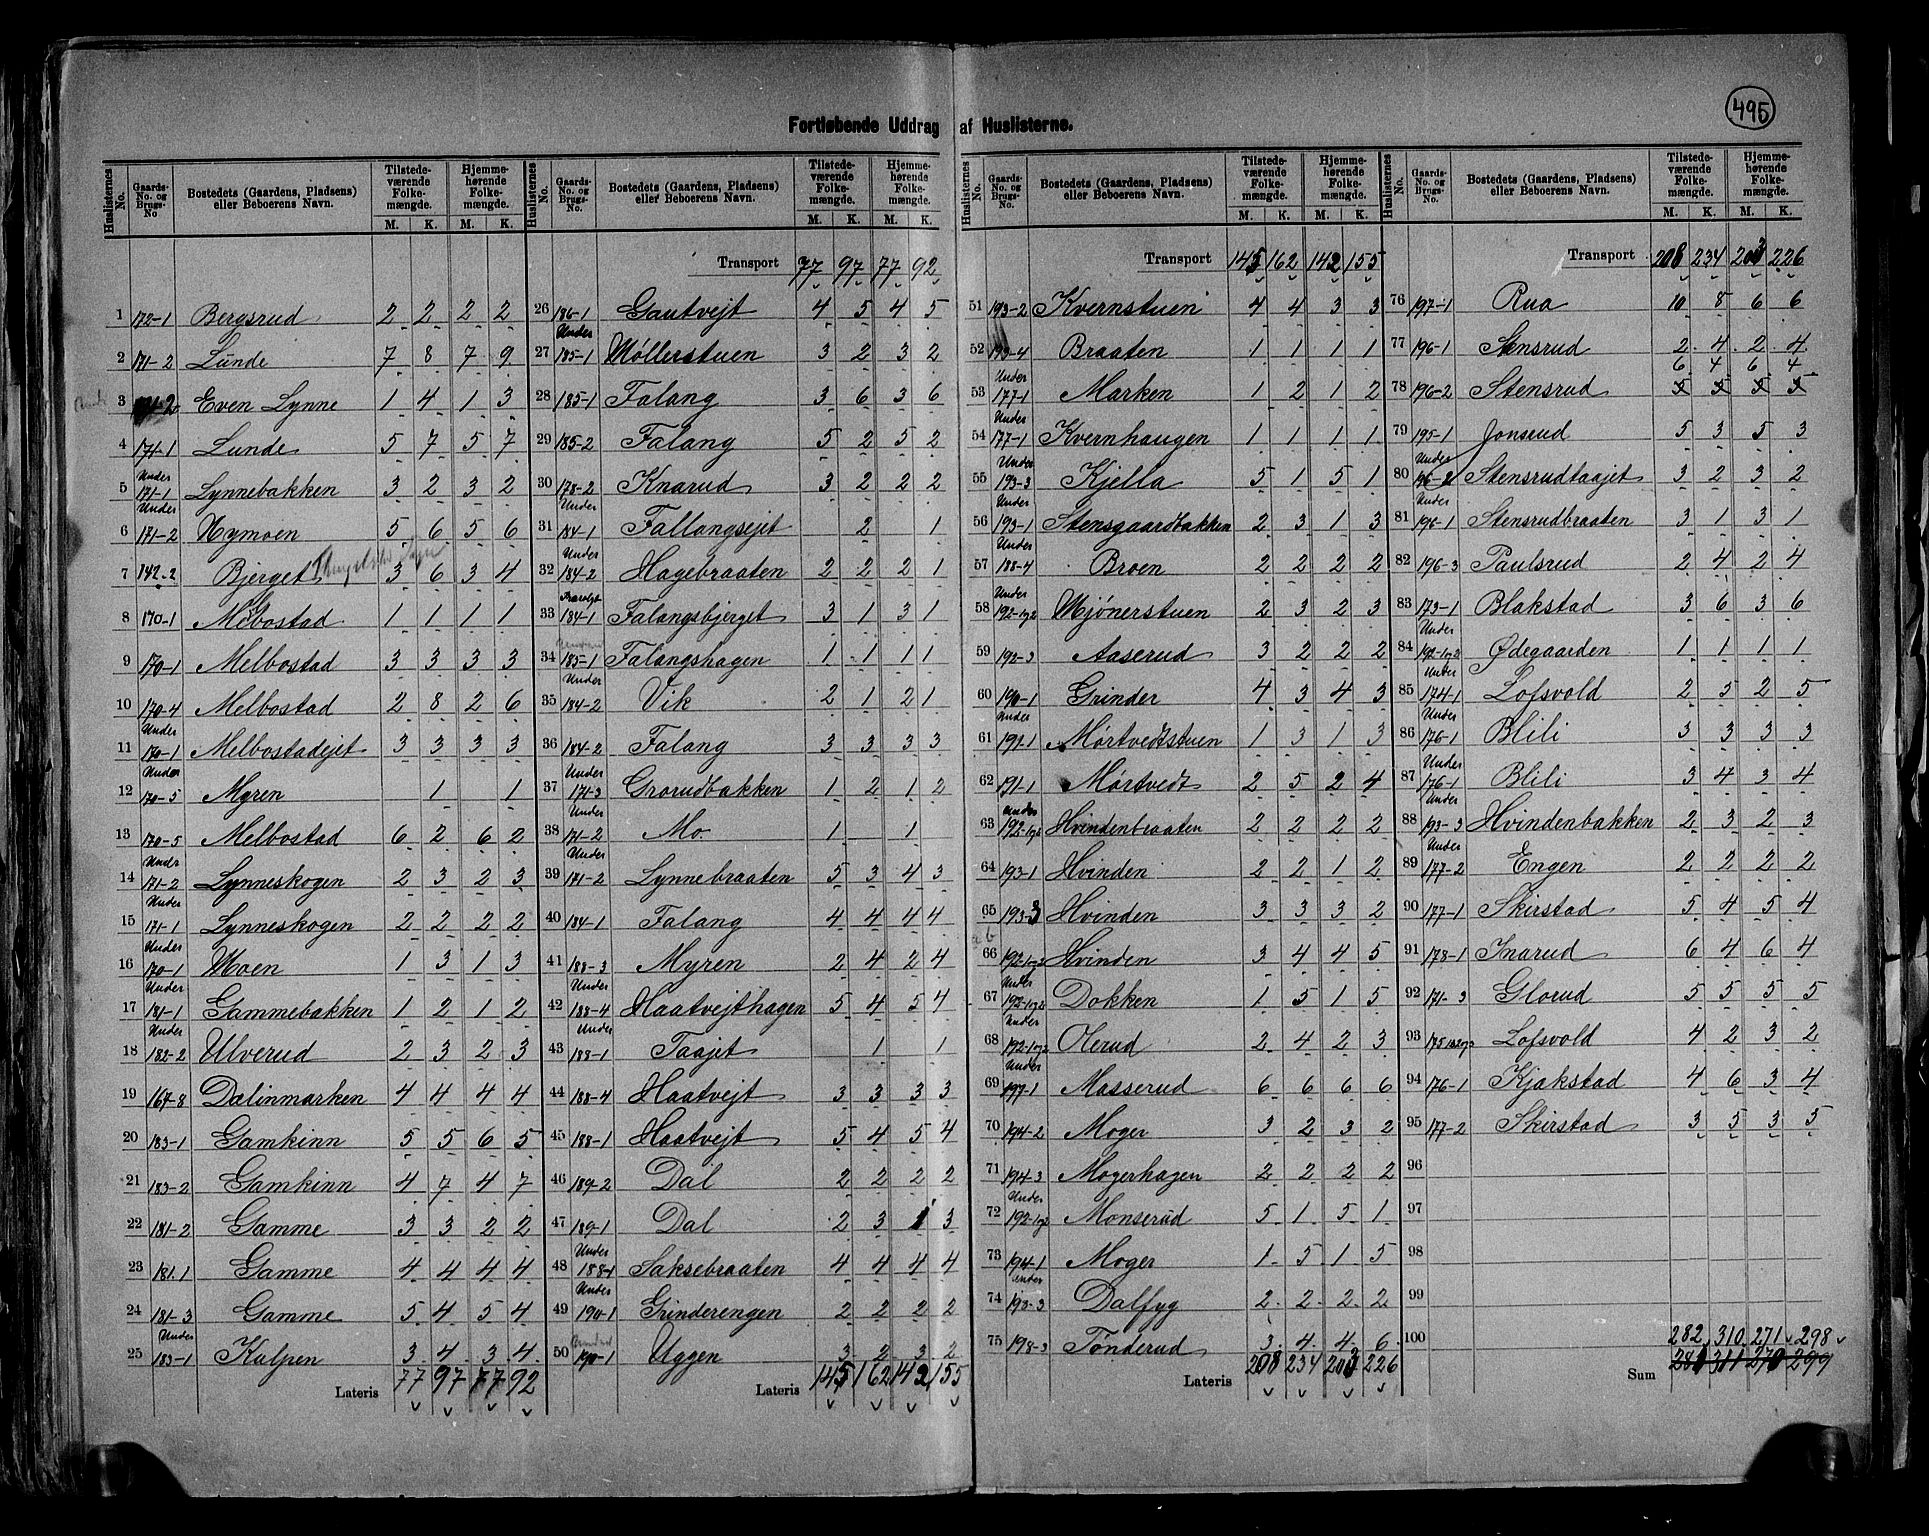 495
Fortløbende Uddrag af Huslisterne.
Huslisternes No. | Gaards-No. og Brugs-No | Bostedets (Gaardens, Pladsens) eller Beboerens Navn. | Tilstedeværende Folkemængde. M. K. | Hjemmehørende Folkemængde. M. K.
1 172-1 Bergsrud 2 2 2 2
2 171-2 Lunde 7 8 7 9
3 171-2 Even Lynne 1 4 1 3
4 171-1 Lunde 5 7 5 7
5 Under 171-1 Lynnebakken 3 2 3 2
6 Under 171-2 Nymoen 5 6 5 6
7 142-2 Bjerget 3 6 3 4
8 170-1 Melbostad 1 1 1 1
9 170-1 Melbostad 3 3 3 3
10 170-4 Melbostad 2 8 2 6
11 Under 170-1 Melbostadejet 3 3 3 3
12 Under 170-5 Myren 1 1
13 170-5 Melbostad 6 2 6 2
14 Under 171-2 Lynneskogen 2 3 2 3
15 Under 171-1 Lynneskogen 2 2 2 2
16 Under 170-1 Moen 1 3 1 3
17 Under 181-1 Gammebakken 1 2 1 2
18 Under 182-2 Ulverud 2 3 2 3
19 167-8 Dælinmarken 4 4 4 4
20 183-1 Gamkinn 5 5 6 5
21 183-2 Gamkinn 4 7 4 7
22 181-2 Gamme 3 3 2 2
23 181.1 Gamme 4 4 4 4
24 181-3 Gamme 5 4 5 4
25 Under 183-1 Kalpen 3 4 3 4
Lateris 77 97 77 92
Huslisternes No. | Gaards-No. og Brugs-No. | Bostedets (Gaardens, Pladsens) eller Beboerens Navn. | Tilstedeværende Folkemængde. M. K. | Hjemmehørende Folkemængde. M. K.
Transport 77 97 77 92
26 186-1 Gautvejt 4 5 4 5
27 Under 185-1 Møllerstuen 3 2 3 2
28 185-1 Falang 3 6 3 6
29 185-2 Falang 5 2 5 2
30 178-2 Knarud 3 2 2 2
31 184-1 Fallangsejet 2 1
32 Under 184-2 Hagebraaten 2 2 2 1
33 184-1 Falangsbjerget 3 1 3 1
34 185-1 Falangshagen 1 1 1 1
35 Under 184-2 Vik 2 1 2 1
36 184-2 Falang 3 3 3 3
37 Under 171-3 Grorudbakken 1 2 1 2
38 Under 171-2 Mo. 1 1
39 Under 171-2 Lynnebraaten 5 3 4 3
40 184-1 Falang 4 4 4 4
41 188-3 Myren 2 4 2 4
42 Under 188-4 Haatvejthagen 5 4 5 4
43 Under 188-1 Taajet 1 1
44 188-4 Haatvejt 3 3 3 3
45 188-1 Haatvejt 5 4 5 4
46 189-2 Dal 2 2 2 2
47 189-1 Dal 2 3 1 3
48 Under 188-1 Saksebraaten 4 4 4 4
49 Under 190-1 Grinderengen 2 2 2 2
50 190-1 Uggen 3 2 3 2
Lateris 145 162 142 155
Huslisternes No. | Gaards-No. og Brugs-No. | Bostedets (Gaardens, Pladsens) eller Beboerens Navn. | Tilstedeværende Folkemængde. M. K. | Hjemmehørende Folkemængde. M. K.
Transport 145 162 142 155
51 193-2 Kvernstuen 4 4 3 3
52 193-4 Braaten 1 1 1 1
53 Under 177-1 Marken 1 2 1 2
54 Under 177-1 Kvernhaugen 1 1 1 1
55 Under 193-3 Kjella 5 1 5 1
56 Under 193-1 Stensgaardbakken 2 3 1 3
57 Under 188-4 Broen 2 2 2 2
58 Under 192-1og2 Mjønerstuen 2 3 2 3
59 192-3 Aaserud 3 2 2 2
60 190-1 Grinder 4 3 4 3
61 Under 191-1 Mørtvedtstuen 1 3 1 3
62 191-1 Mørtvedt 2 5 2 4
63 Under 192-1og2 Hvindenbraaten 2 2 2 2
64 193-1 Hvinden 2 2 1 2
65 193-3 Hvinden 3 3 3 2
66 192-1og2 Hvinden 3 4 4 5
67 Under 192-1og2 Dokken 1 5 1 5
68 Under 192-1og2 Olerud 2 4 2 3
69 Under 197-1 Masserud 6 6 6 6
70 194-2 Moger 3 2 3 2
71 194-3 Mogerhagen 2 2 2 2
72 Under 192-1og2 Monserud 5 1 5 1
73 194-1 Moger 1 5 1 5
74 Under 193-3 Dalfyg 2 2 2 2
75 198-3 Tønderud 3 4 4 6
Lateris 208 234 203 226
Huslisternes No. | Gaards-No. og Brugs-No. | Bostedets (Gaardens, Pladsens) eller Beboerens Navn. | Tilstedeværende Folkemængde. M. K. | Hjemmehørende Folkemængde. M. K.
Transport 208 234 203 226
76 197-1 Rua 10 8 6 6
77 196-1 Stensrud 2 4 2 4
6 4 6 4
78 196-2 Stensrud 5 5 5 5
79 195-1 Jonsrud 5 3 5 3
80 Under 196-2 Stensrudtaajet 3 2 3 2
81 Under 196-1 Stensrudbraaten 3 1 3 1
82 196-3 Paulsrud 2 4 2 4
83 173-1 Blakstad 3 6 3 6
84 Under 192-1og2 Ødegaarden 1 1 1 1
85 Under 174-1 Lofsvold 2 5 2 5
86 Under 176-1 Blili 3 3 3 3
87 Under 176-1 Blili 3 4 3 4
88 Under 193-3 Hvindenbakken 2 3 2 3
89 Under 177-2 Engen 2 2 2 2
90 177-1 Skirstad 5 4 5 4
91 178-1 Knarud 6 4 6 4
92 171-3 Glorud 5 5 5 5
93 Lofsvold 4 2 3 2
94 176-1 Kjakstad 4 6 3 4
95 177-2 Skirstad 3 5 3 5
96
97
98
99
100
282 310 271 298
Sum 281 311 270 299